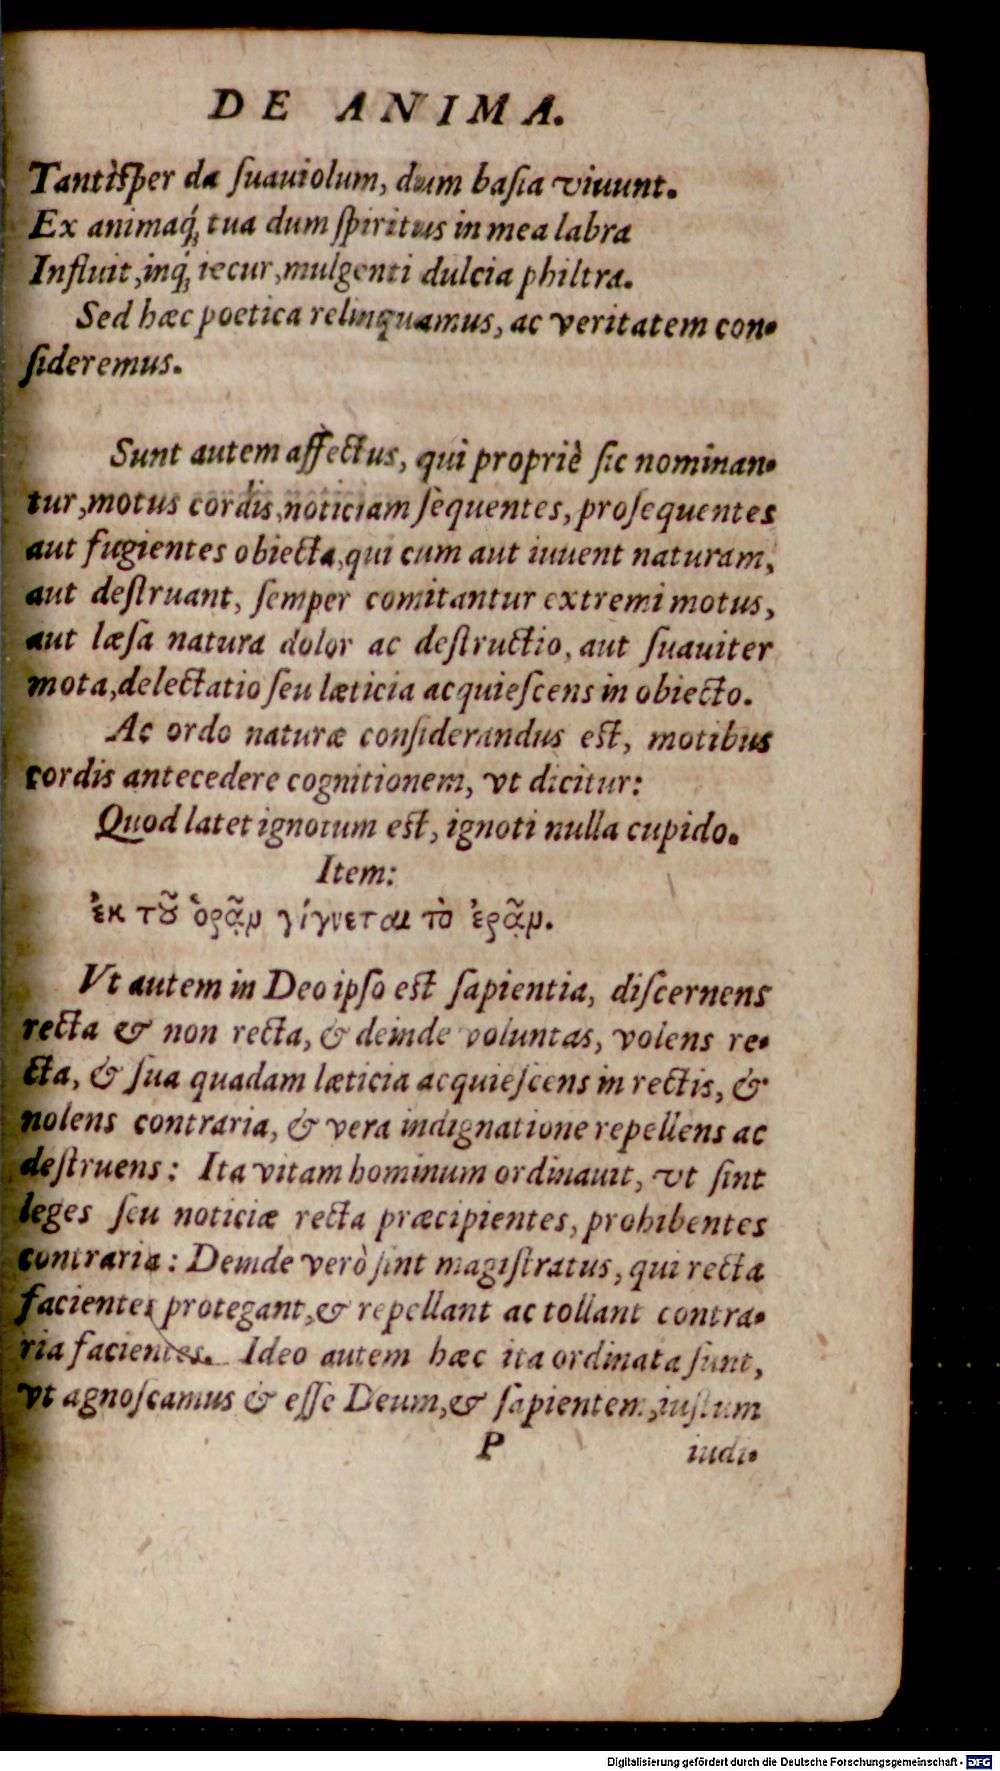 DE ANIMA.
Tantìsper da ſuauiolum, dum baſia viuunt.
Ex animaq́; tua dum ſpiritus in mea labra
Influit, inq́; iecur, mulgenti dulcia philtra.
Sed hæc poetica relinquamus, ac veritatem con-
ſideremus.
Sunt autem affectus, qui propriè ſic nominan-
tur, motus cordis, noticiam ſequentes, proſequentes
aut fugientes obiecta, qui cum aut iuuent naturam,
aut deſtruant, ſemper comitantur extremi motus,
aut læſa natura dolor ac deſtructio, aut ſuauiter
mota, delectatio ſeu læticia acquieſcens in obiecto.
Ac ordo naturæ conſiderandus eſt, motibus
cordis antecedere cognitionem, vt dicitur:
Quod latet ignotum eſt, ignoti nulla cupido.
Item:
ἐκ τȣ͂ ὁρᾷν γίγνεται τὸ ἐρᾷν.
Vt autem in Deo ipſo eſt ſapientia, diſcernens
recta & non recta, & deinde voluntas, volens re-
cta, & ſua quadam læticia acquieſcens in rectis, &
nolens contraria, & vera indignatione repellens ac
deſtruens: Ita vitam hominum ordinauit, vt ſint
leges ſeu noticiæ recta præcipientes, prohibentes
contraria: Deinde verò ſint magiſtratus, qui recta
facientes protegant, & repellant ac tollant contra-
ria facientes. Ideo autem hæc ita ordinata ſunt,
vt agnoſcamus & eſſe Deum, & ſapientem, iuſtum
P iudi-
Digitalisierung gefördert durch die Deutsche Forschungsgemeinschaft - DFG